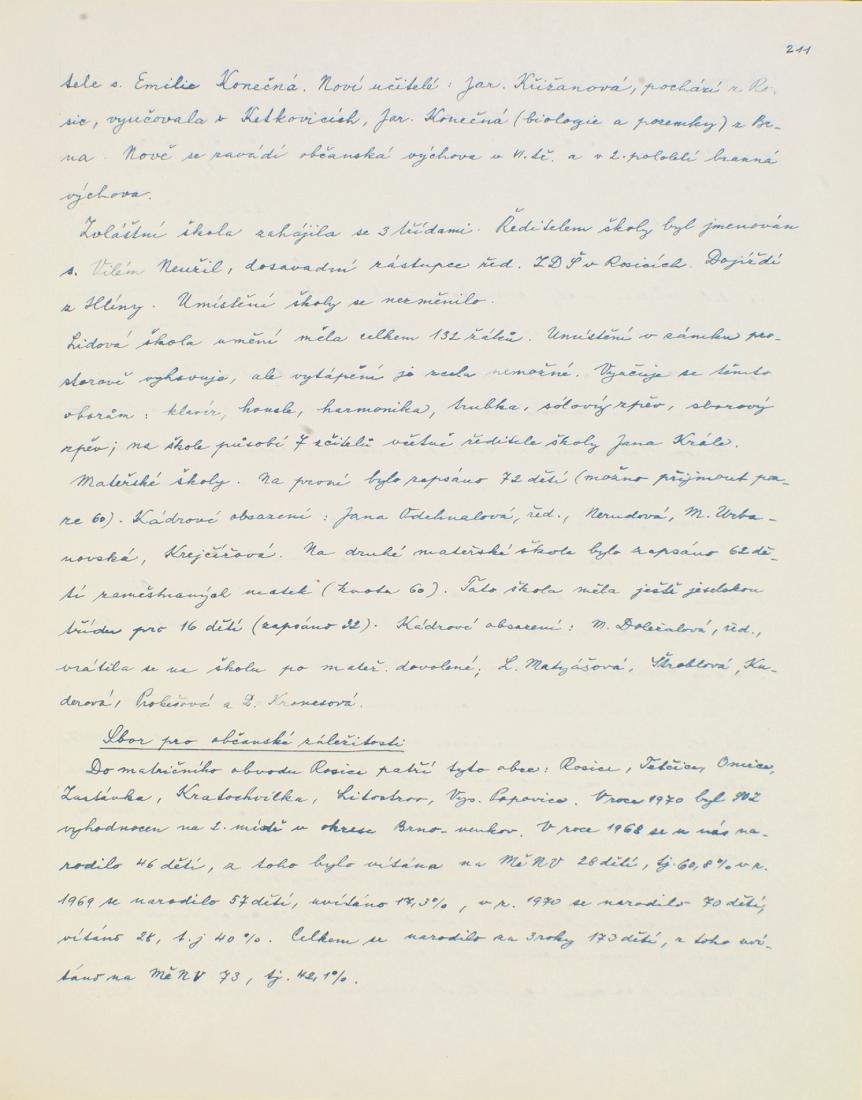 211
tele s. Emilie Konečná. Noví učitelé: Jar. Křižanová, pochází z Ro-
sic, vyučovala v Ketkovicích, Jar. Konečná (biologie a pozemky) z Br-
na. Nově se zavádí občanská výchova v 6. tř. a v 2. pololetí branná
výchova.
Zvláštní škola zahájila se 3 třídami. Ředitelem školy byl jmenován
s. Vilém Neužil, dosavadní zástupce řed. ZDŠ v Rosicích. Dojíždí
z Hlíny. Umístění školy se nezměnilo.
Lidová škola umění měla celkem 132 žáků. Umístění v zámku pro-
storově vyhovuje, ale vytápění je zcela nemožné. Vyučuje se těmto
oborům: klavír, housle, harmonika, trubka, sólový zpěv, sborový
zpěv; na škole působí 7 učitelů včetně ředitele školy Jana Krále.
Mateřské školy. Na první bylo zapsáno 72 dětí (možno přijmout pou-
ze 60). Kádrové obsazení: Jana Odehnalová, řed., Nerudová, M. Urba-
novská, Krejčířová. Na druhé mateřské škole bylo zapsáno 62 dě-
tí zaměstnaných matek (kvota 60). Tato škola měla ještě jeselskou
třídu pro 16 dětí (zapsáno 22). Kádrové obsazení: M. Doležalová, řed.,
vrátila se na školu po mateř. dovolené; L. Matyášová, Škroblová, Ku-
derová, Probešová a D. Kranesová.
Sbor pro občanské záležitosti
Do matričního obvodu Rosice patří tyto obce: Rosice, Tetčice, Omice,
Zastávka, Kratochvilka, Litostrov, Vys. Popovice. V roce 1970 byl SOZ
vyhodnocen na 2. místě v okrese Brno-venkov. V roce 1968 se u nás na-
rodilo 46 dětí, z toho bylo vítáno na MěNV 28 dětí, tj. 60,8% v r.
1969 se narodilo 57 dětí, uvítáno 17,3%, v r. 1970 se narodilo 70 dětí,
vítáno 28, t.j 40%. Celkem se narodilo za 3 roky 173 dětí, z toho uví-
táno na MěNV 73, tj. 42,1%.